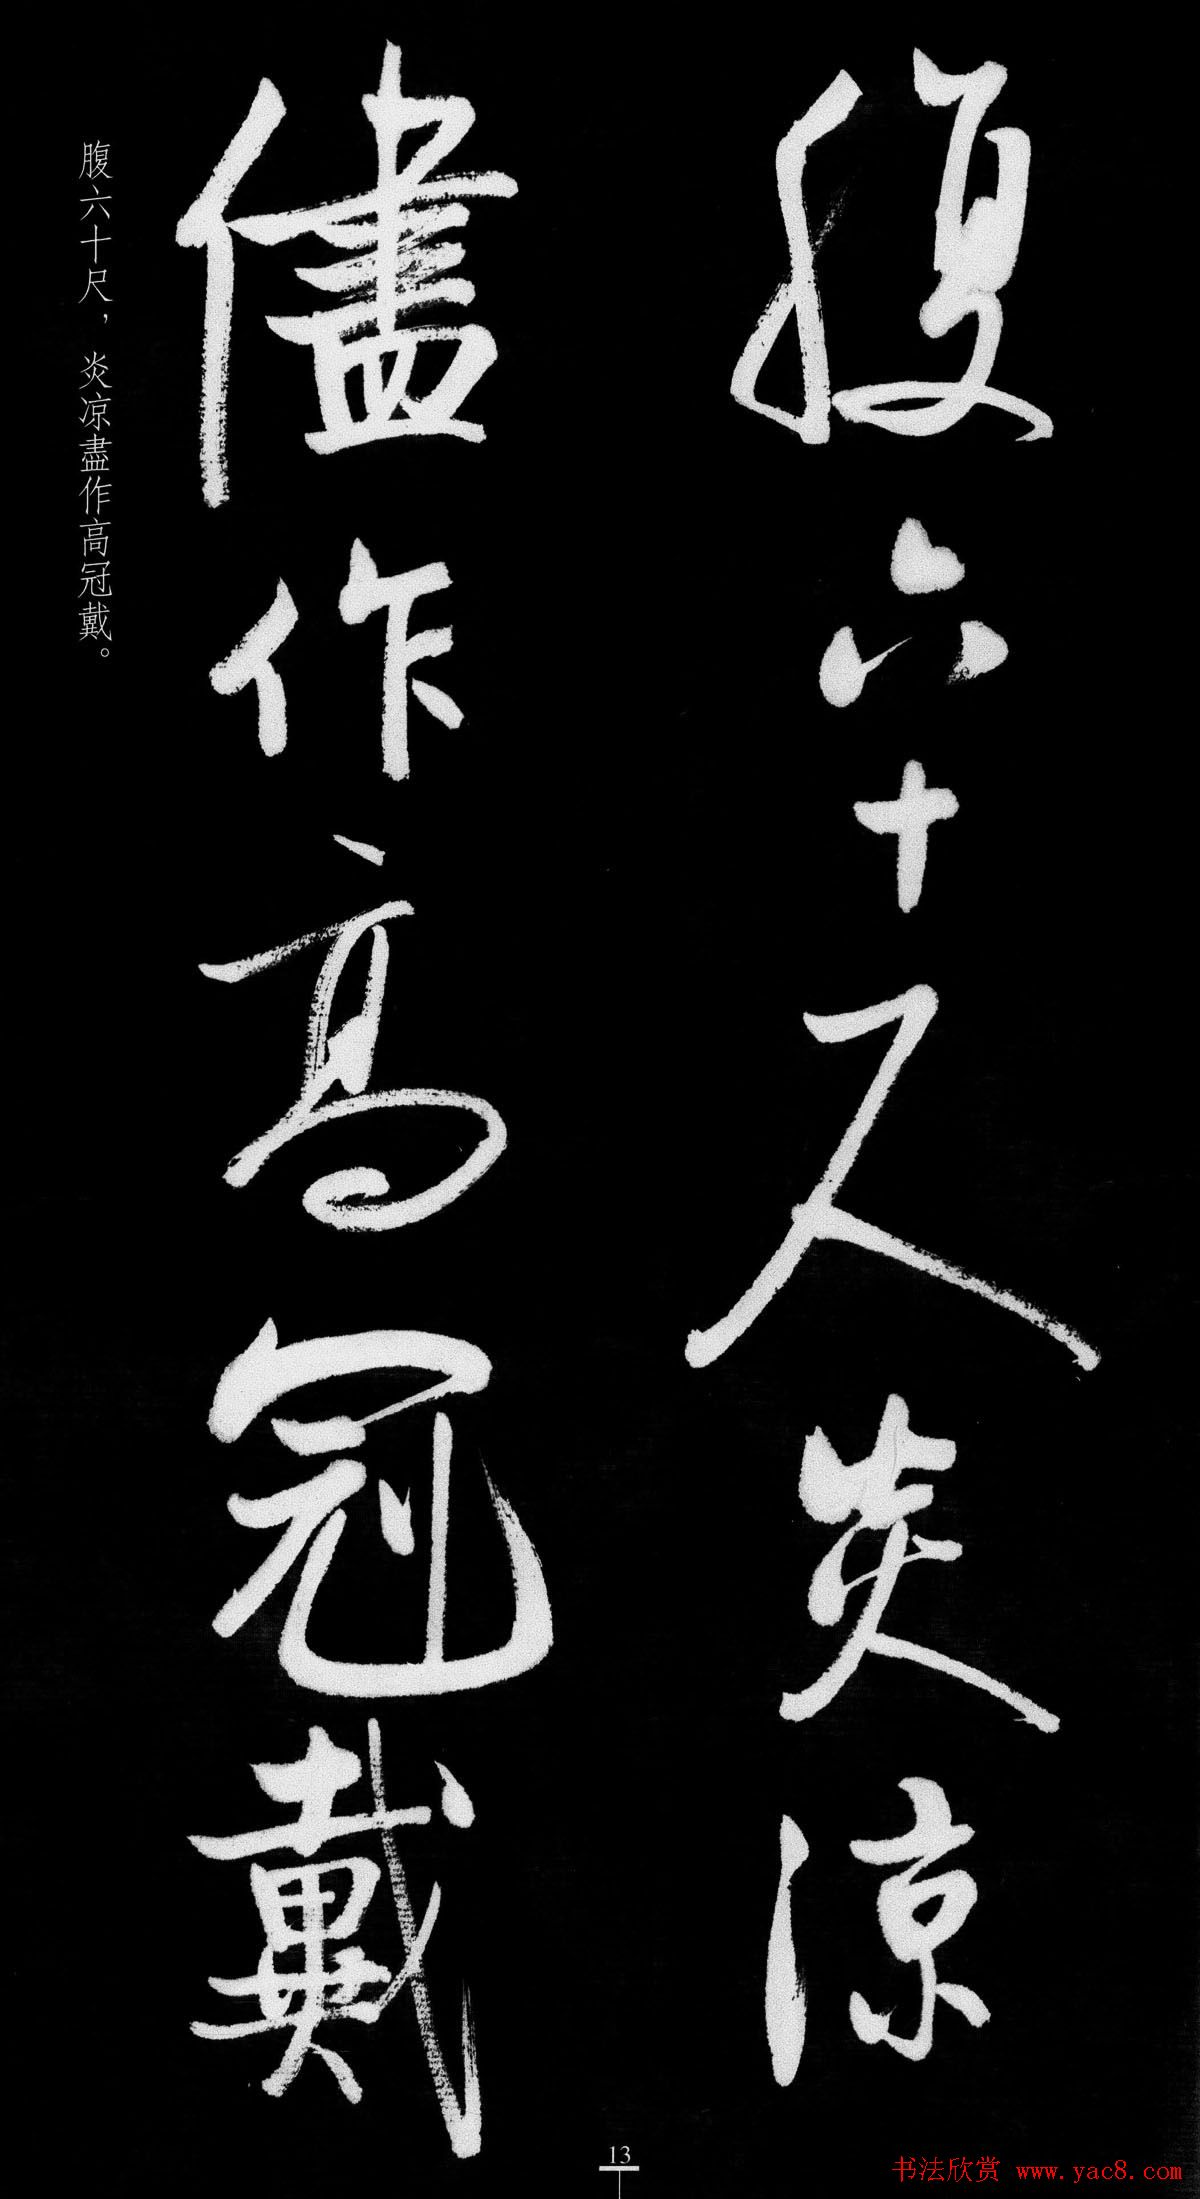 腹六十尺炎涼
儘作高冠戴
腹六十尺，炎凉盡作高冠戴。
13
书法欣赏 www.yac8.com